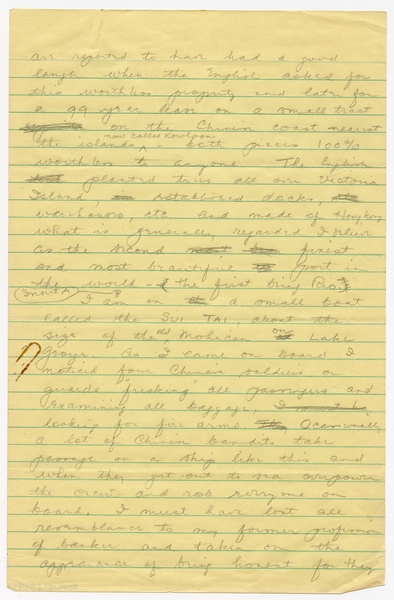 are reported to have had a good
laugh when the English asked for
this worthless property and later for
a 99 year lease on a small tract
on the Chinese coast nearest
now called Kowloon
the islands - both pieces 100%
worthless to anyone. The English
planted trees all over Victoria
Island, established docks,
warehouses, etc and made of Hong Kong
what is generally regarded I believe
as the second finest
and most beautiful port in
the world - (the first being Rio)
Insert A I am on a small boat
called the SUI TAI, about the
size of the old Mohican on Lake
George. As I came on board I
noticed four Chinese soldiers or
guards "frisking" all passengers and
examining all baggage,
looking for fire arms. Occasionally
a lot of Chinese bandits take
passage on a ship like this and
when they get out to sea overpower
the crew and rob everyone on
board. I must have lost all
resemblance to my former profession
of banker and taken on the
appearance of being honest for they